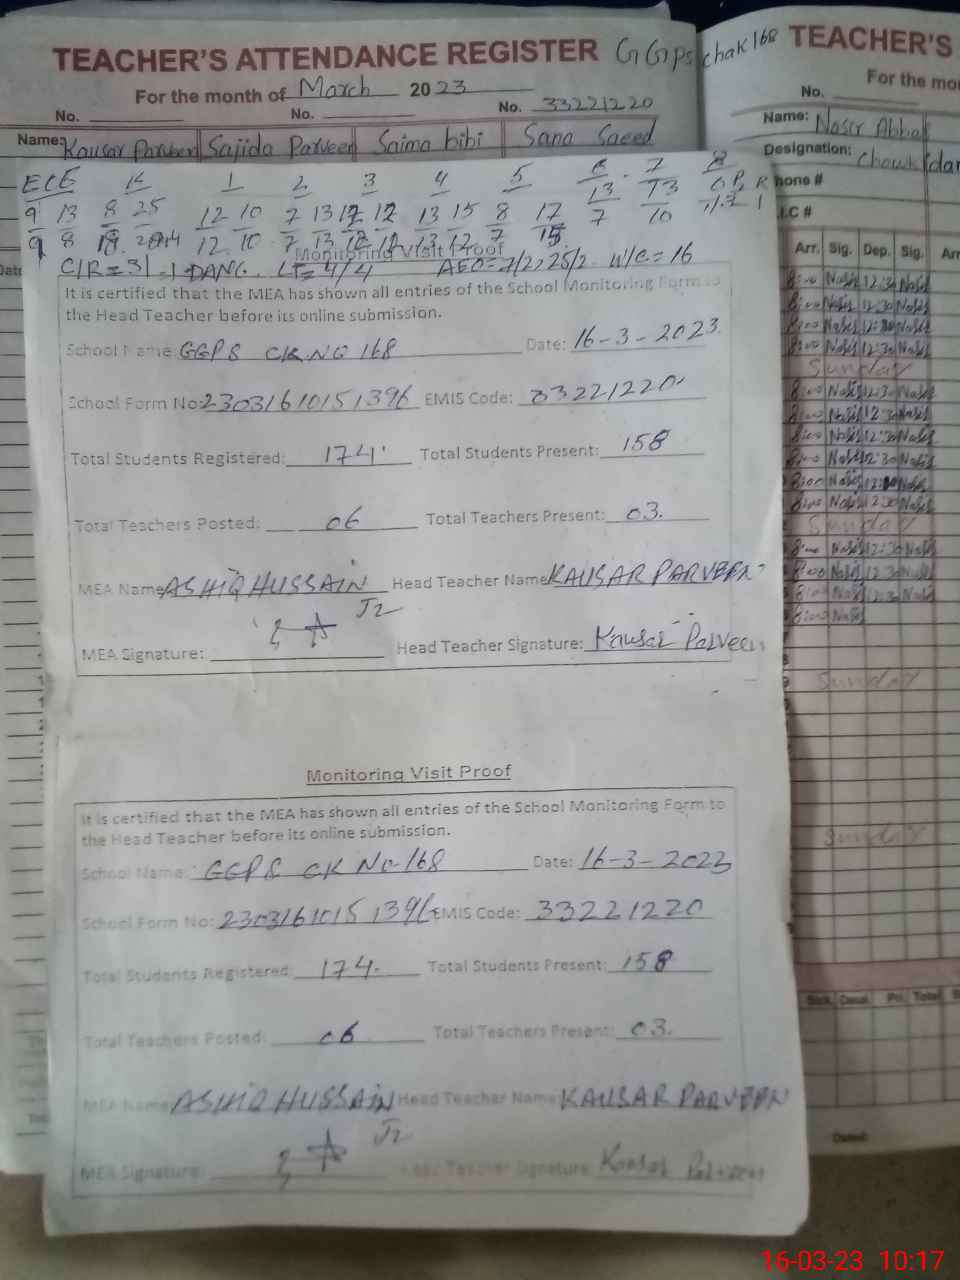 TEACHER'S ATTENDANCE REGISTER GGPS chak 168
For the month of March 2023
No. No. No. 33221220
Name: Kausar Parveen Sajida Parveen Saima bibi Sana Saeed
ECE K 1 2 3 4 5 6 7 8
Monitoring Visit Proof
C/R = 31 - 1 DANG. LT = 4/4 AEO = 7/2, 25/2 W/C = 16
It is certified that the MEA has shown all entries of the School Monitoring Form to
the Head Teacher before its online submission.
School Name: GGPS CK NO 168 Date: 16-3-2023.
School Form No: 23031610151396 EMIS Code: 33221220
Total Students Registered: 174. Total Students Present: 158
Total Teachers Posted: 06 Total Teachers Present: 03.
MEA Name: ASHIQ HUSSAIN Head Teacher Name: KAUSAR PARVEEN
MEA Signature: Head Teacher Signature: Kausar Parveen
Monitoring Visit Proof
It is certified that the MEA has shown all entries of the School Monitoring Form to
the Head Teacher before its online submission.
School Name: GGPS CK NO 168 Date: 16-3-2023
School Form No: 23031610151396 EMIS Code: 33221220
Total Students Registered: 174. Total Students Present: 158
Total Teachers Posted: 06 Total Teachers Present: 03.
MEA Name: ASHIQ HUSSAIN Head Teacher Name: KAUSAR PARVEEN
MEA Signature: Head Teacher Signature: Kausar Parveen
TEACHER'S
For the mo
No.
Name: Nasir Abbas
Designation: Chowkidar
hone #
I.C #
Arr. Sig. Dep. Sig. Arr
8:00 Nasir 12:30 Nasir
8:00 Nasir 12:30 Nasir
8:00 Nasir Nasir
8:00 Nasir 12:30 Nasir
Sunday
8:00 Nasir 12:30 Nasir
8:00 Nasir 12:30 Nasir
8:00 Nasir 12:30 Nasir
8:00 Nasir 12:30 Nasir
8:00 Nasir Nasir
8:00 Nasir 12:30 Nasir
Sunday
8:00 Nasir 12:30 Nasir
8:00 Nasir 12:30 Nasir
8:00 Nasir 12:30 Nasir
8:00 Nasir
Sunday
Sunday
Sick Casul. Pri. Total
Dated:
16-03-23 10:17